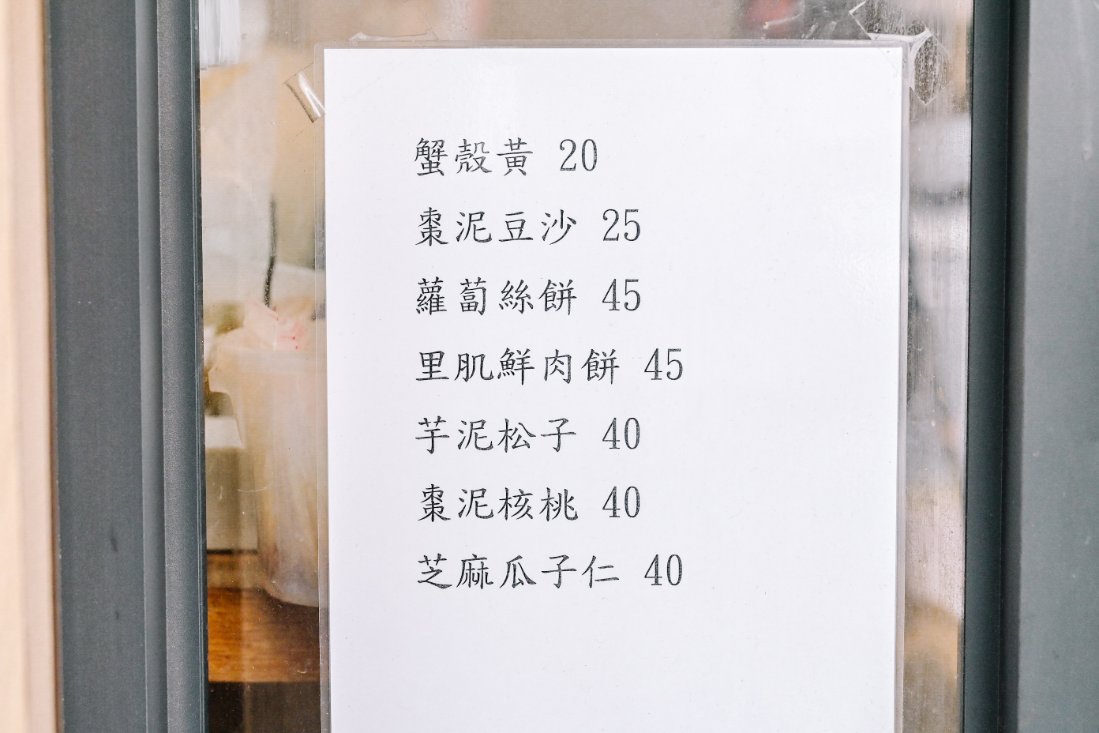 蟹殼黃 20
棗泥豆沙 25
蘿蔔絲餅 45
里肌鮮肉餅 45
芋泥松子 40
棗泥核桃 40
芝麻瓜子仁 40